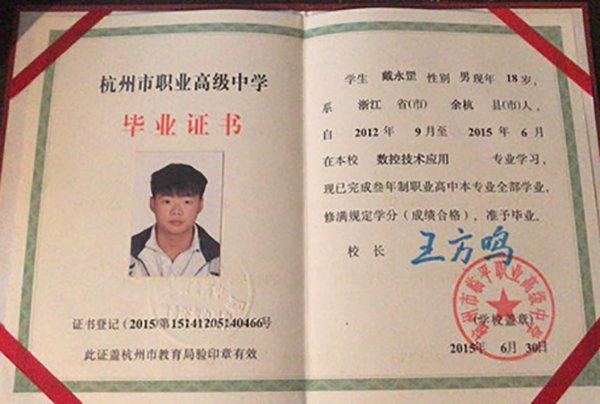 杭州市职业高级中学
毕业证书
证书登记(2015)第15141205140466号
此证盖杭州市教育局验印章有效
学生 戴永罡 性别 男 现年 18 岁,
系 浙江 省(市) 余杭 县(市)人,
自 2012 年 9月至 2015 年 6 月
在本校 数控技术应用 专业学习,
现已完成叁年制职业高中本专业全部学业,
修满规定学分(成绩合格),准予毕业。
校 长 王方鸣
杭州市临平职业高级中学
(学校盖章)
2015年 6月 30日